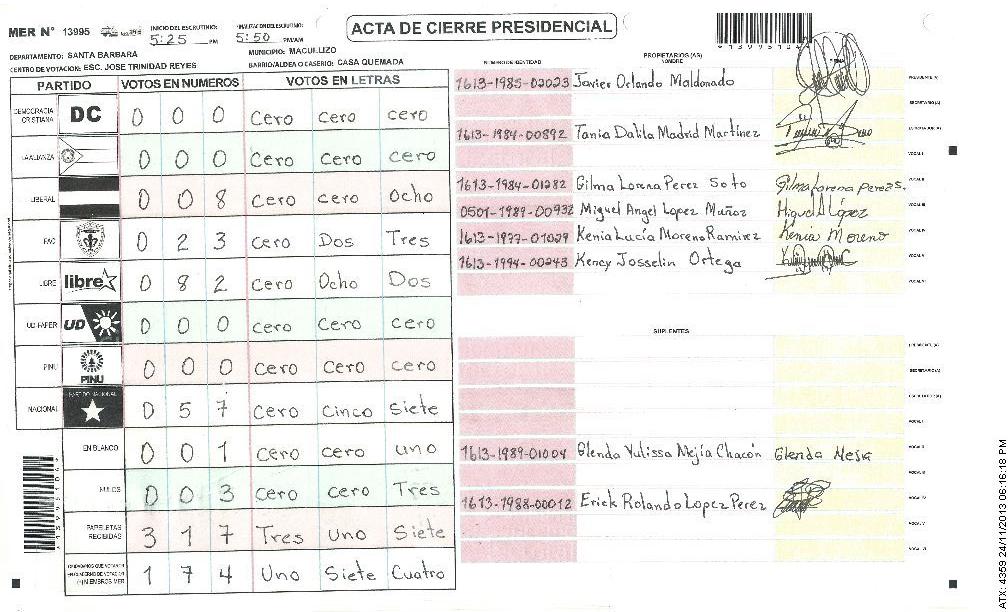 MER N° 13995
INICIO DEL ESCRUTINIO: 5:25 PM
FINALIZACION ESCRUTINIO: 5:50 PM/AM
ACTA DE CIERRE PRESIDENCIAL
DEPARTAMENTO: SANTA BARBARA
MUNICIPIO: MACUELIZO
CENTRO DE VOTACION: ESC. JOSE TRINIDAD REYES
BARRIO/ALDEA O CASERIO: CASA QUEMADA
PARTIDO VOTOS EN NUMEROS VOTOS EN LETRAS
DEMOCRACIA CRISTIANA DC 0 0 0 Cero Cero cero
LA ALIANZA 0 0 0 Cero Cero cero
LIBERAL 0 0 8 Cero cero Ocho
PAC 0 2 3 Cero Dos Tres
LIBRE libre 0 8 2 Cero Ocho Dos
UD-FAPER UD 0 0 0 Cero Cero cero
PINU PINU 0 0 0 Cero Cero cero
NACIONAL PARTIDO NACIONAL 0 5 7 Cero Cinco Siete
EN BLANCO 0 0 1 Cero cero uno
NULOS 0 0 3 Cero cero Tres
PAPELETAS RECIBIDAS 3 1 7 Tres uno Siete
CIUDADANOS QUE VOTARON EN CUADERNO DE VOTACION (+) MIEMBROS MER 1 7 4 Uno Siete Cuatro
NUMERO DE IDENTIDAD
PROPIETARIOS (AS)
NOMBRE
FIRMA
1613-1985-02023 Javier Orlando Maldonado PRESIDENTE (A)
SECRETARIO (A)
1613-1984-00892 Tania Dalila Madrid Martínez ESCRUTADOR (A)
VOCAL I
1613-1984-01282 Gilma Lorena Perez Soto Gilma Lorena Perez S. VOCAL II
0501-1989-00932 Miguel Angel Lopez Muñoz Miguel A López VOCAL III
1613-1977-01029 Kenia Lucía Moreno Ramirez Kenia Moreno VOCAL IV
1613-1994-00243 Kency Josselin Ortega VOCAL V
VOCAL VI
SUPLENTES
PRESIDENTE (A)
SECRETARIO (A)
ESCRUTADOR (A)
VOCAL I
1613-1989-01004 Glenda Yulissa Mejía Chacón Glenda Mejia VOCAL II
VOCAL III
1613-1988-00012 Erick Rolando Lopez Perez VOCAL IV
VOCAL V
VOCAL VI
ATX: 4359 24/11/2013 06:16:18 PM